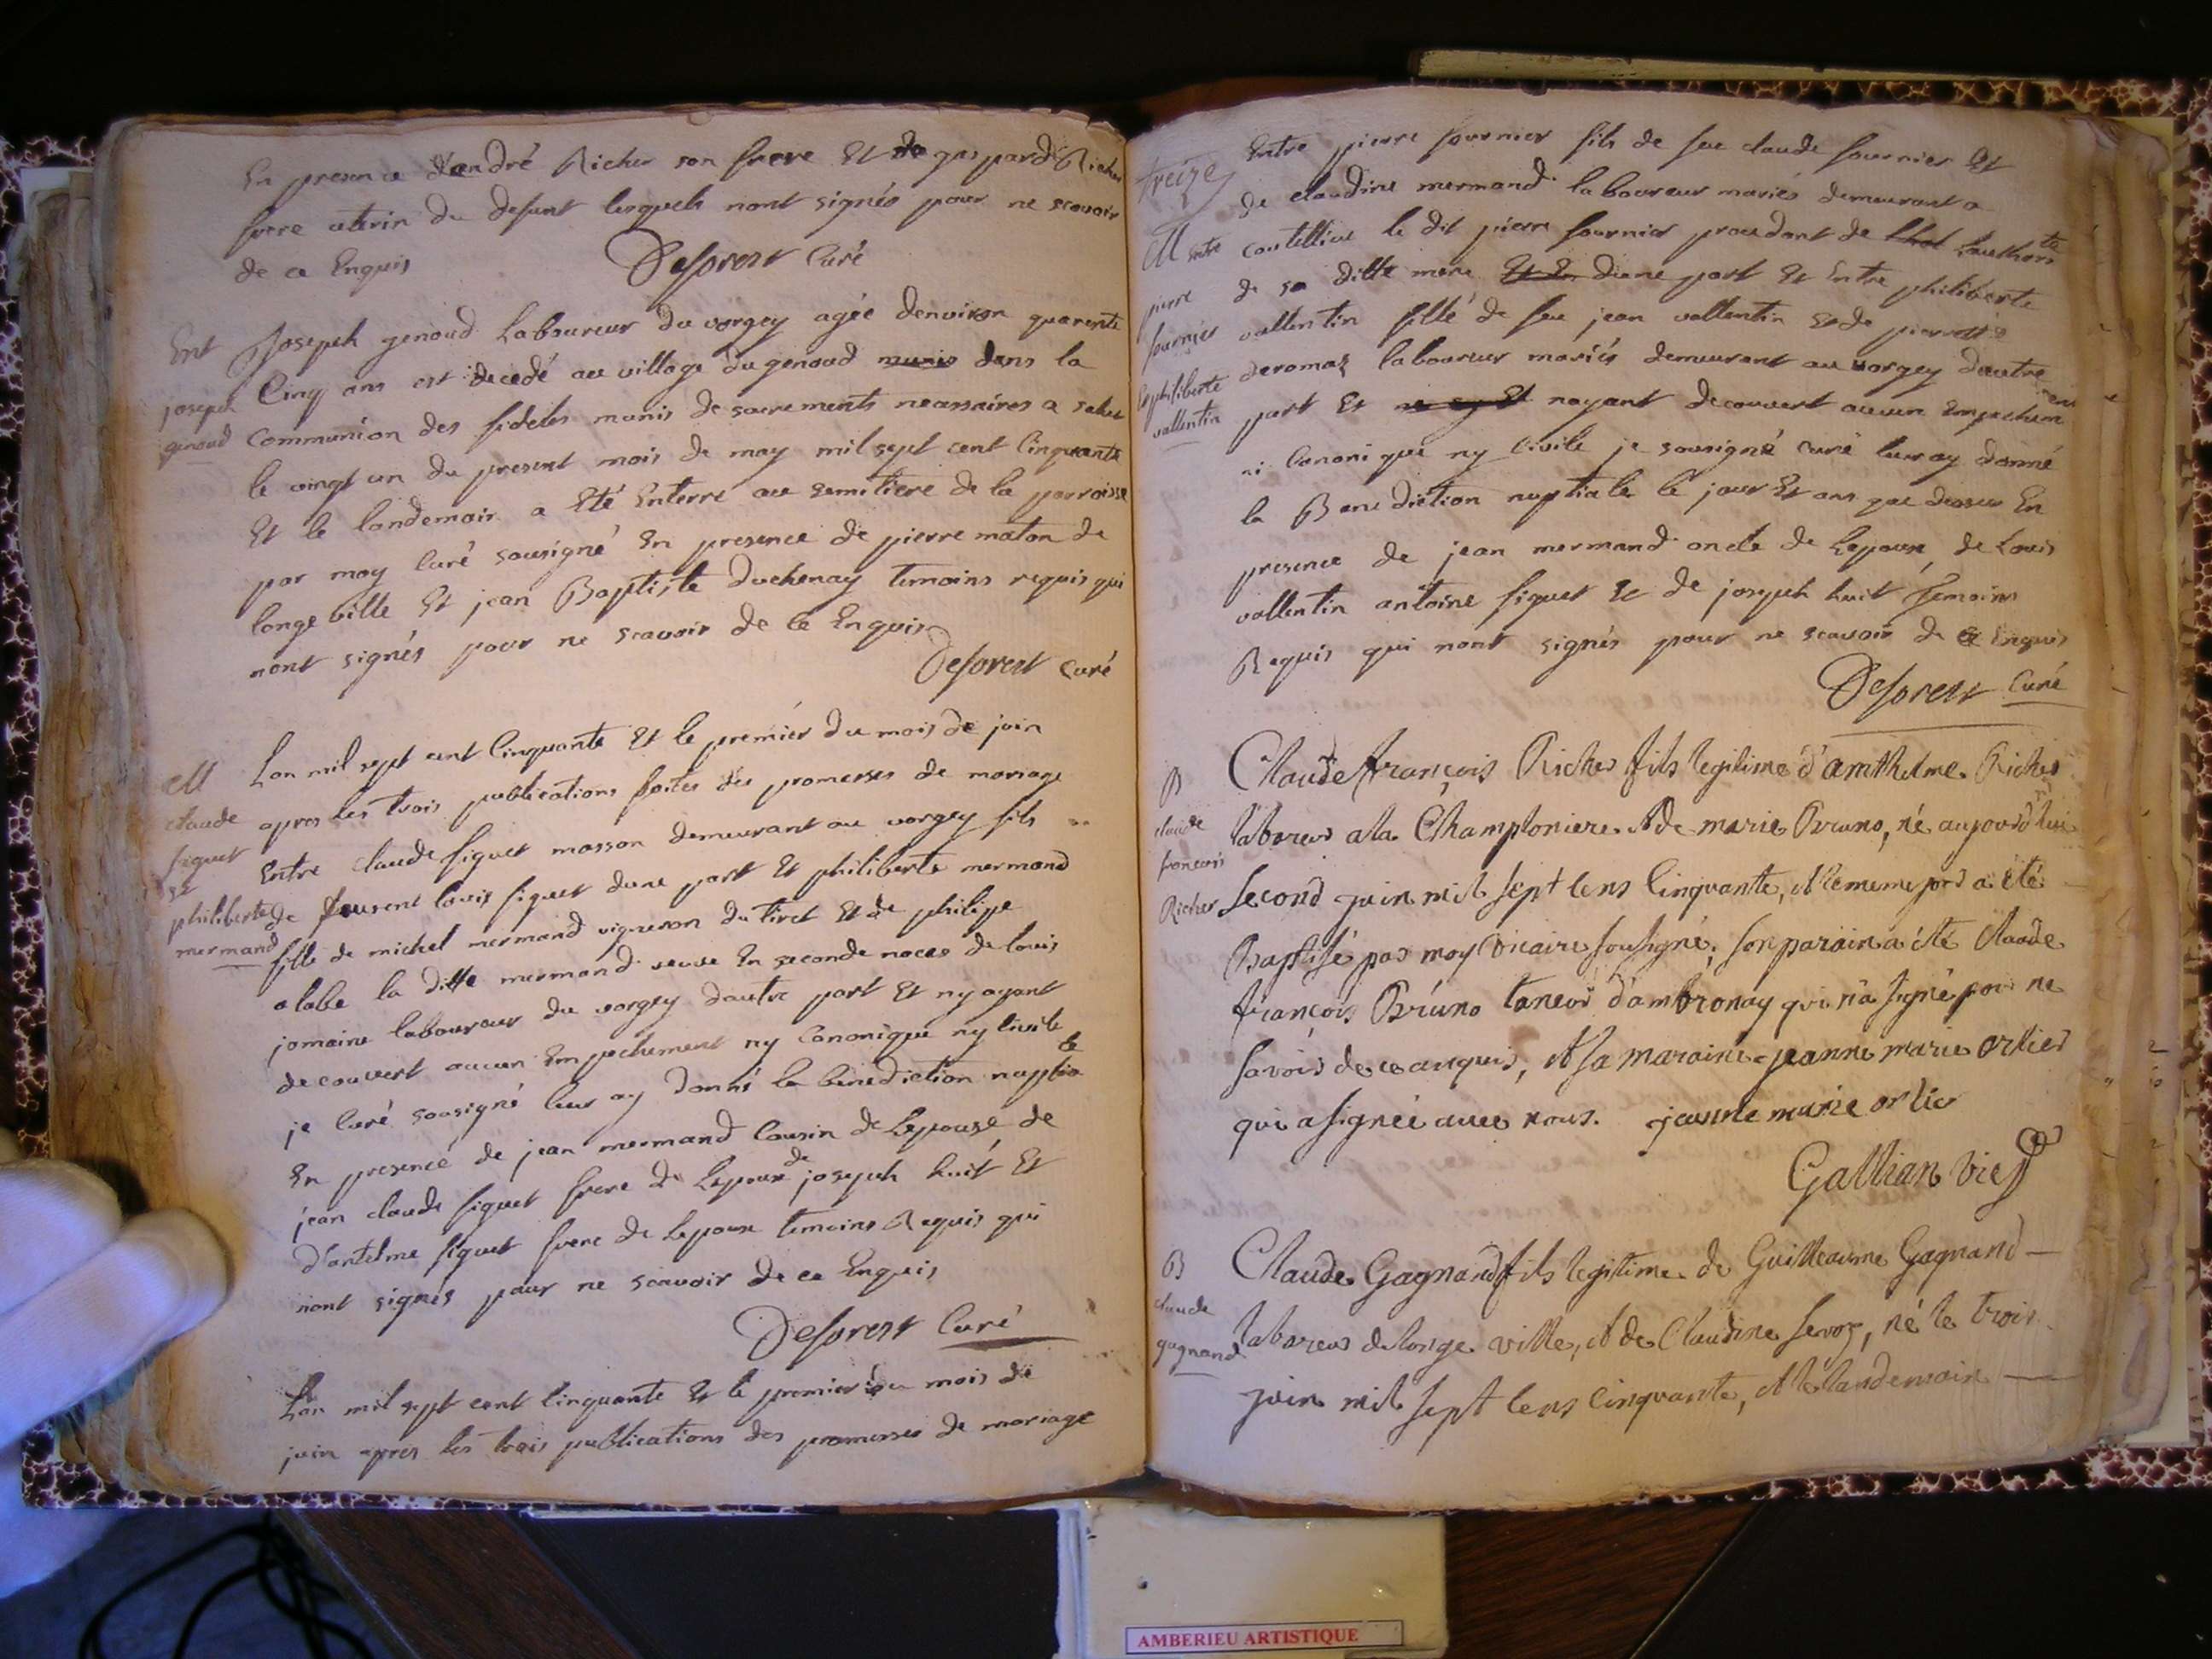 En presence d'andré Richer son frere Et de gaspard Richer
frere uterin du defunt lesquels nont signés pour ne scavoir
de ce Enquis Deforest Curé
Ent
joseph
genoud
Joseph genoud Laboureur du vorgey agée denviron quarente
Cinq ans est decedé au village du genoud munis dans la
Communion des fideles munis de sacrements necessaires a salut
le vingt un du present mois de may mil sept cent Cinquante
Et le landemain a Eté Enterré au semitiere de la parroisse
par moy Curé sousigné En presence de pierre maton de
longeville Et jean Baptiste duchenay temoins requis qui
nont signés pour ne scavoir de ce Enquis
Deforest curé
M
claude
figuet
Et
philiberte
mermand
Lan mil sept cent Cinquante Et le premier du mois de join
apres les trois publications faites des promesses de mariage
Entre claude figuet masson demeurant au vorgey fils
de louis figuet dune part Et philiberte mermand
fille de michel mermand vigneron du tiret Et de philipe
alabe la ditte mermand veuve En seconde noces de louis
jomaine laboureur du vorgey dautre part Et ny ayant
decouvert aucun Empechement ny Canonique ny Civile
je Curé sousigné leur ay donné la benediction nuptiale
En presence de jean mermand Cousin de Lepouse, de
jean claude figuet frere de Lepoux de joseph huit Et
d'antelme figuet frere de Lepoux temoins Requis qui
nont signés pour ne scavoir de ce Enquis
Deforest Curé
Lan mil sept cent Cinquante Et le premier du mois de
juin apres les trois publications des promesses de mariage
treize
M entre
pierre
fournier
Et philiberte
vallentin
Entre pierre fournier fils de feu claude fournier Et
de claudine mermand laboureur mariés demeurant a
coutellieu le dit pierre fournier procedant de Lauthorité
de sa ditte mere Et En dune part Et Entre philiberte
vallentin fille de feu jean vallentin Et de pierrette
deromas laboureur mariés demeurant au vorgey dautre
part Et nayant decouvert aucun Empechement
ni Canonique ny Civile je sousigné curé leur ay donné
la Benediction nuptiale le jour Et ans que dessus En
presence de jean mermand oncle de Lepoux, de Louis
vallentin antoine figuet Et de joseph huit temoins
Requis qui nont signés pour ne scavoir de ce Enquis
Deforest Curé
B
claude
francois
Richer
Claude françois Richer fils legitime d'amthelme Richer
laboreur a la Championiere & de marie Bruno, né aujourd'hui
second juin mil sept cens Cinquante, & le meme jour a été
Baptisé par moy Vicaire sousigné, son parain a été Claude
françois Bruno taneur d'ambronay qui n'a signé pour ne
savoir de ce anquis, & sa maraine jeanne marie ortier
qui a signée avec nous. jeanne marie ortier
Gallian vic
B
claude
gagnand
Claude Gagnand fils legitime de Guilleaume Gagnand
laboreur de longe ville, & de Claudine servoz, né le trois
juin mil sept cens Cinquante, & le landemain
AMBERIEU ARTISTIQUE